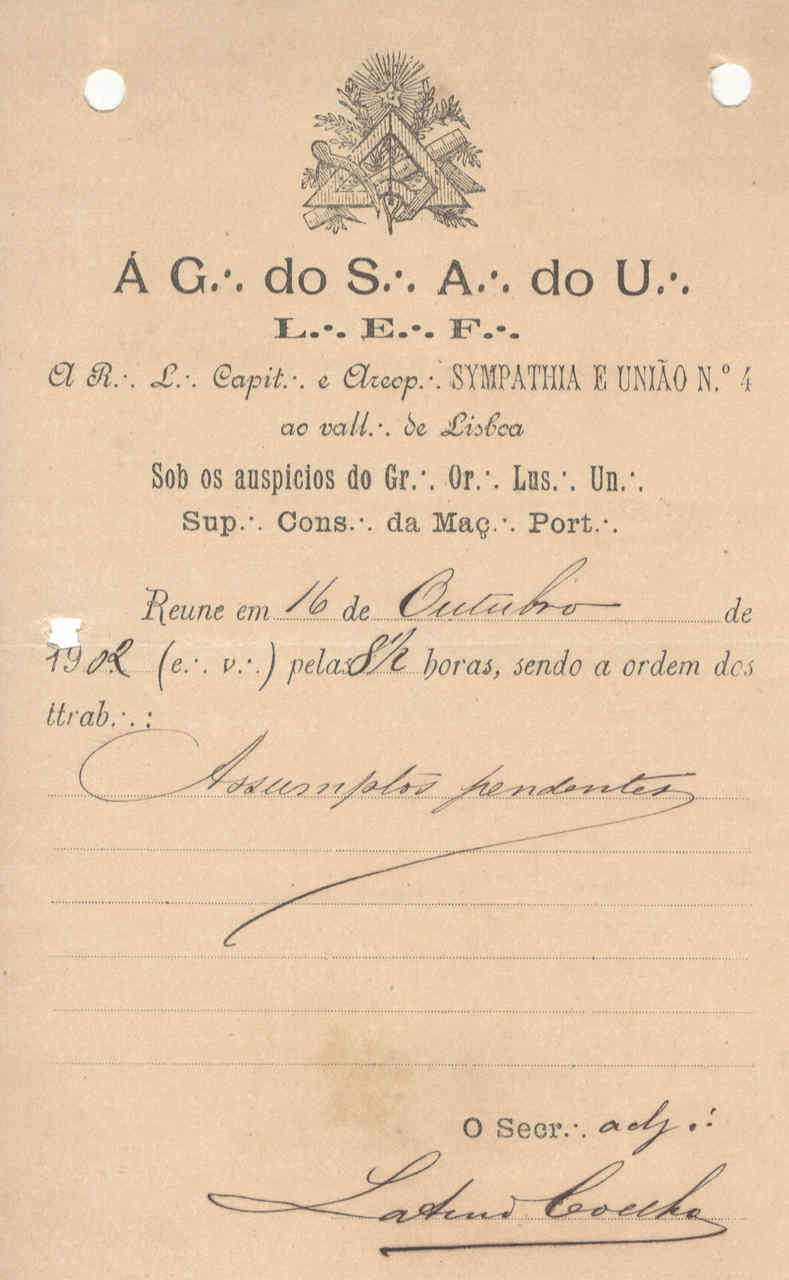 Á G.·. do S.·. A.·. do U.·.
L.·. E.·. F.·.
A R.·. L.·. Capit.·. e Areop.·. SYMPATHIA E UNIÃO N.º 4
ao vall.·. de Lisboa
Sob os auspicios do Gr.·. Or.·. Lus.·. Un.·.
Sup.·. Cons.·. da Maç.·. Port.·.
Reune em 16 de Outubro de
1902 (e.·. v.·.) pelas 8½ horas, sendo a ordem dos
ttrab.·. :
Assumptos pendentes
O Secr.·. adj.·.
Latino Coelho